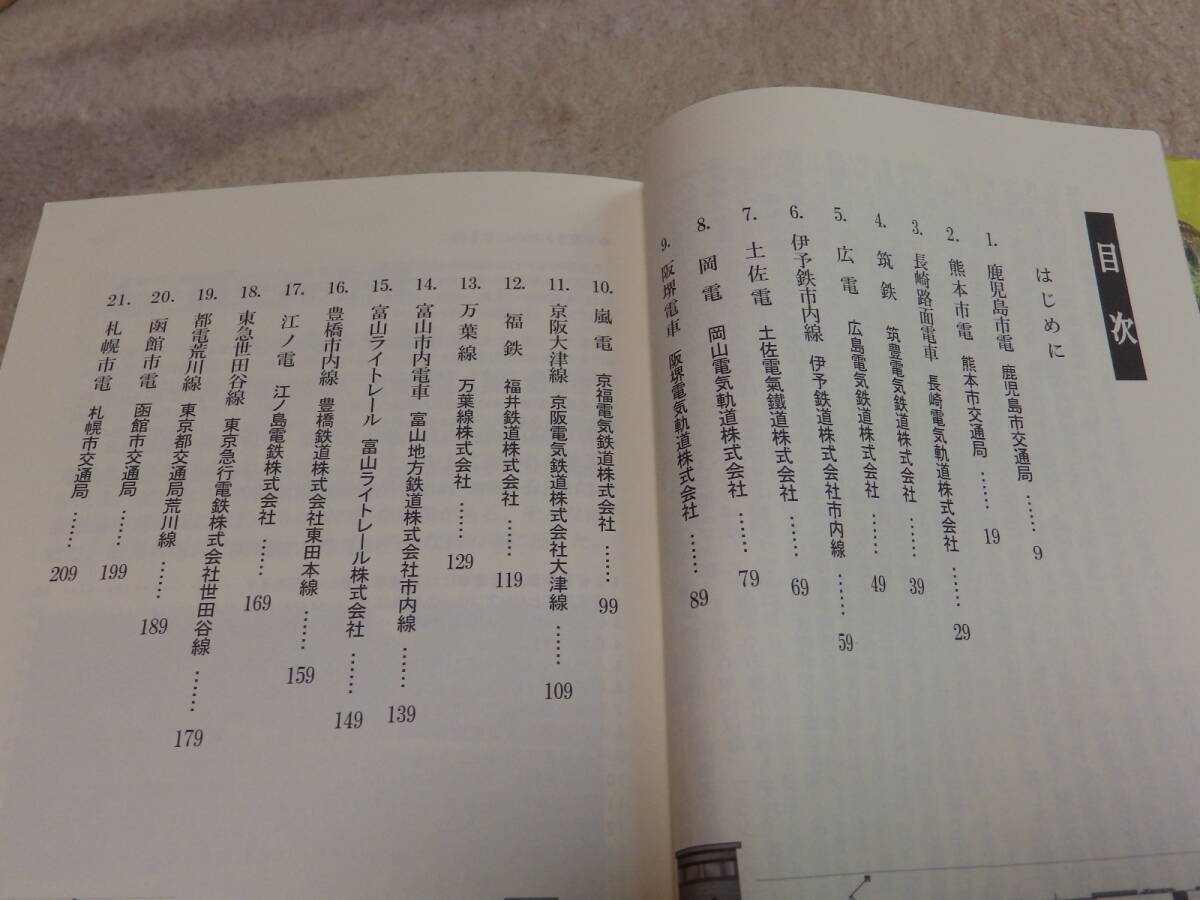 目次
はじめに
1. 鹿児島市電 鹿児島市交通局 …… 9
2. 熊本市電 熊本市交通局 …… 19
3. 長崎路面電車 長崎電気軌道株式会社 …… 29
4. 筑鉄 筑豊電気鉄道株式会社 …… 39
5. 広電 広島電気鉄道株式会社 …… 49
6. 伊予鉄市内線 伊予鉄道株式会社市内線 …… 59
7. 土佐電 土佐電氣鐵道株式会社 …… 69
8. 岡電 岡山電気軌道株式会社 …… 79
9. 阪堺電車 阪堺電気軌道株式会社 …… 89
10. 嵐電 京福電気鉄道株式会社 …… 99
11. 京阪大津線 京阪電気鉄道株式会社大津線 …… 109
12. 福鉄 福井鉄道株式会社 …… 119
13. 万葉線 万葉線株式会社 …… 129
14. 富山市内電車 富山地方鉄道株式会社市内線 …… 139
15. 富山ライトレール 富山ライトレール株式会社 …… 149
16. 豊橋市内線 豊橋鉄道株式会社東田本線 …… 159
17. 江ノ電 江ノ島電鉄株式会社 …… 169
18. 東急世田谷線 東京急行電鉄株式会社世田谷線 …… 179
19. 都電荒川線 東京都交通局荒川線 …… 189
20. 函館市電 函館市交通局 …… 199
21. 札幌市電 札幌市交通局 …… 209